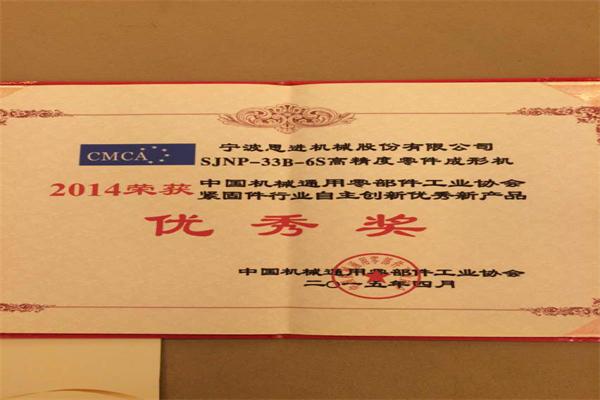 CMCA
宁波思进机械股份有限公司
SJNP-33B-6S高精度零件成形机
2014荣获
中国机械通用零部件工业协会
紧固件行业自主创新优秀新产品
优秀奖
中国机械通用零部件工业协会
二〇一五年四月